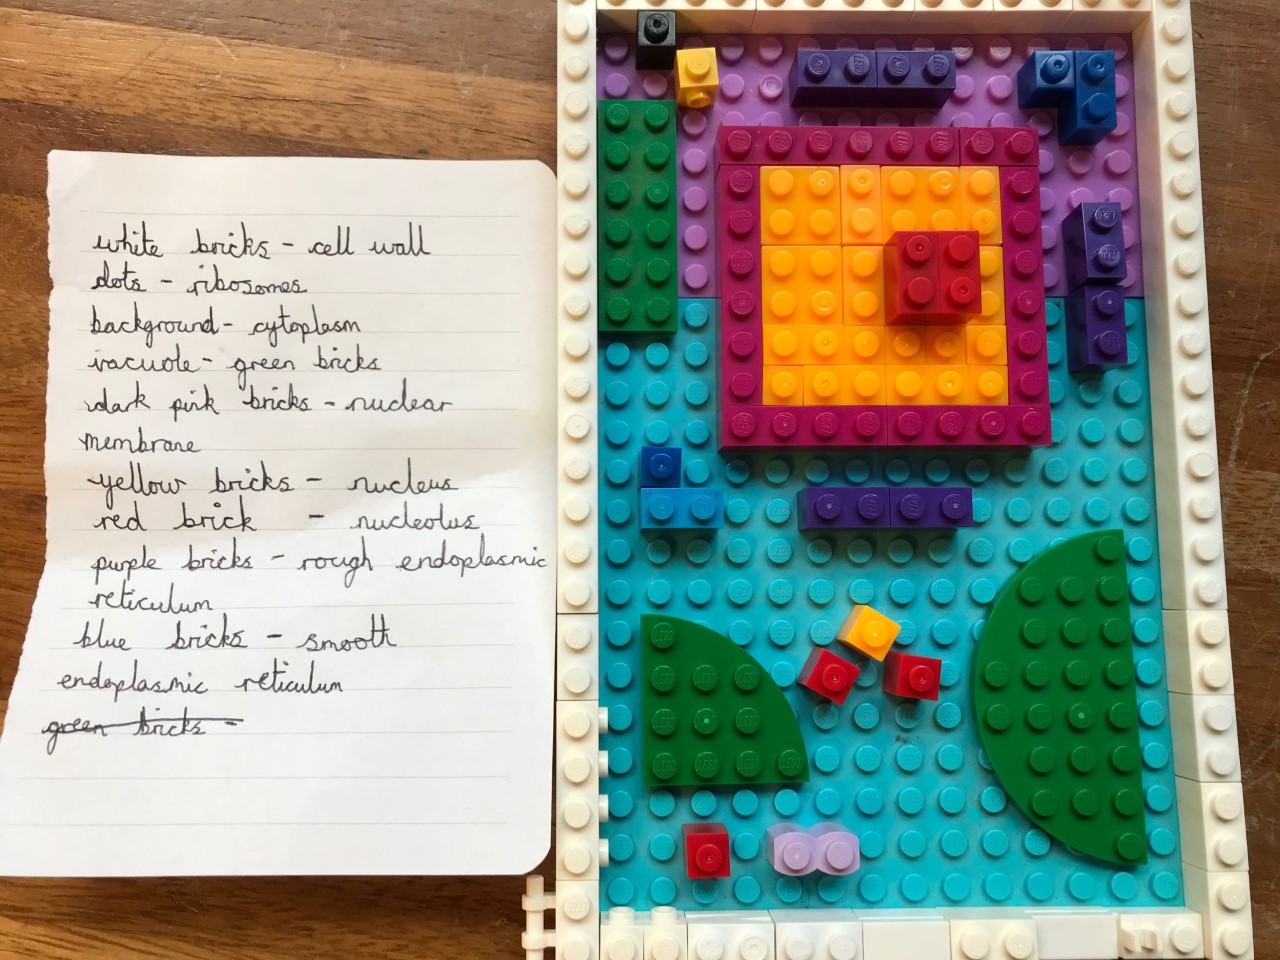 white bricks - cell wall
dots - ribosomes
background - cytoplasm
vacuole - green bricks
dark pink bricks - nuclear
membrane
yellow bricks - nucleus
red brick - nucleolus
purple bricks - rough endoplasmic
reticulum
blue bricks - smooth
endoplasmic reticulum
green bricks -